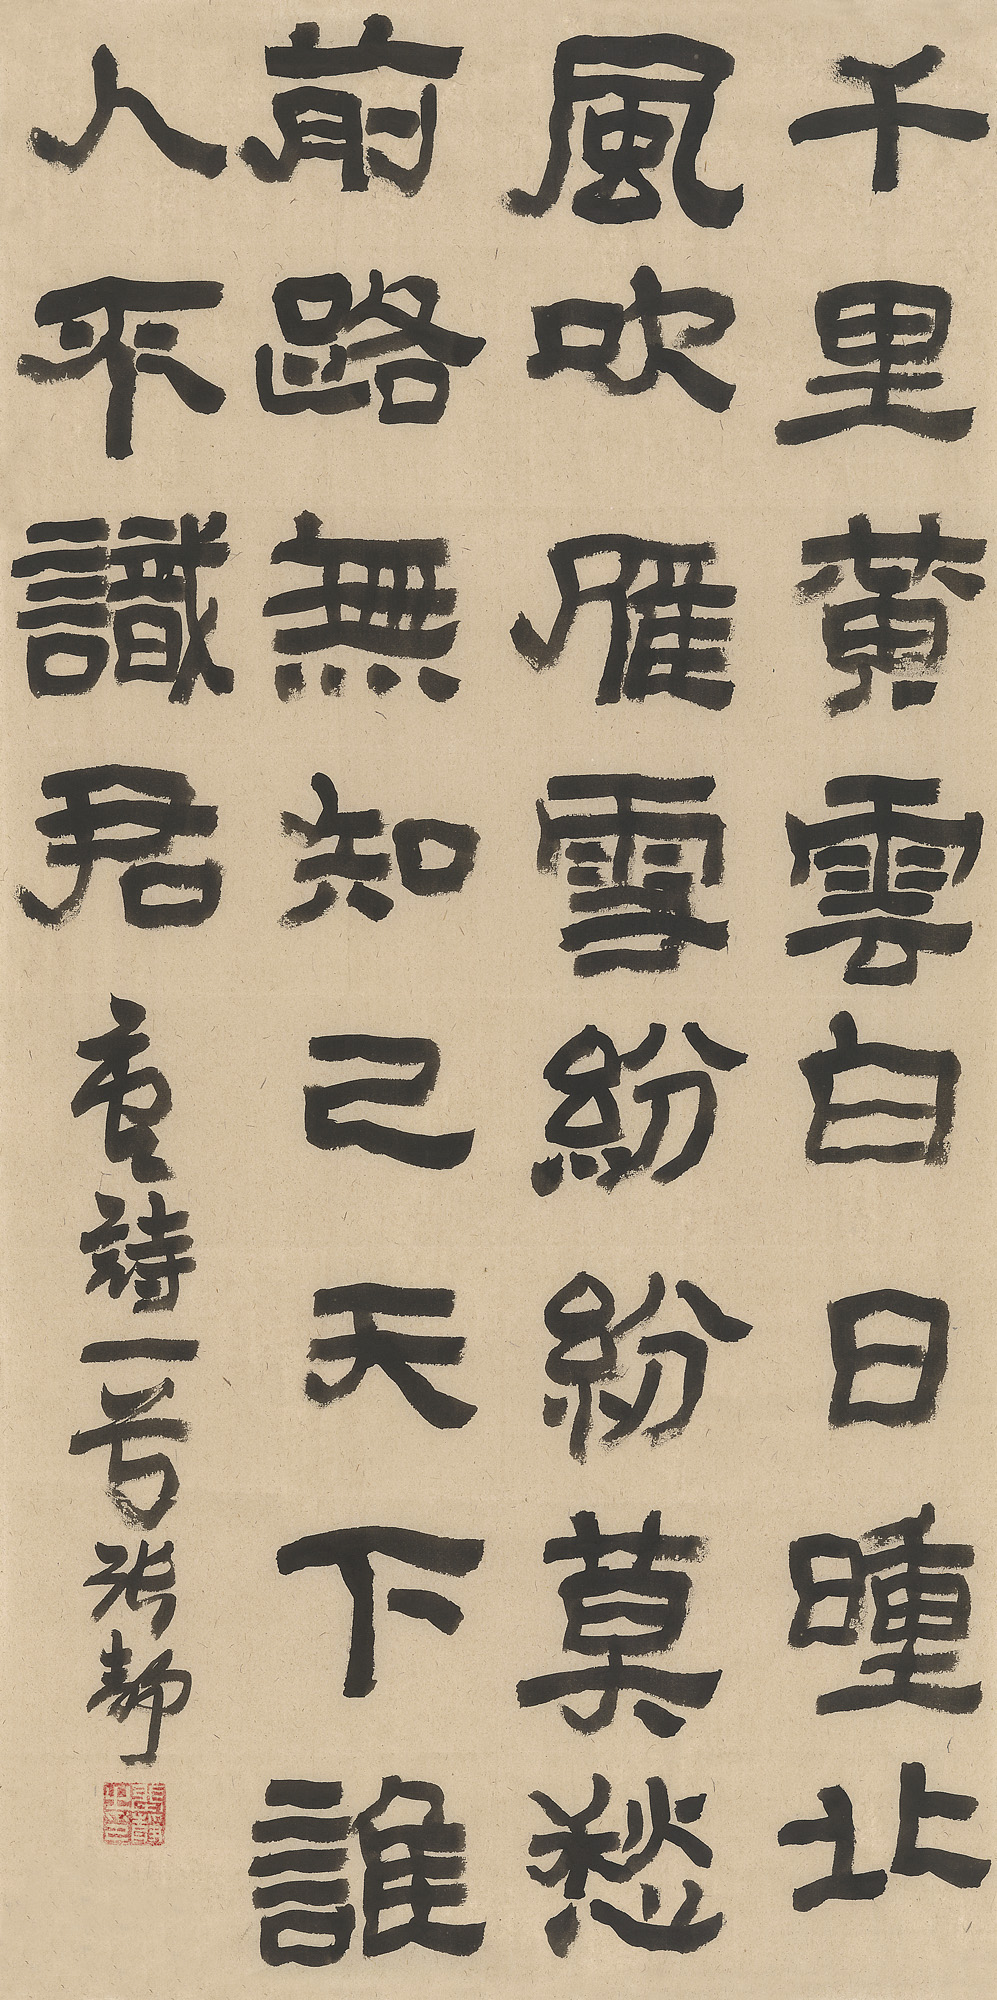 千里黄雲白日曛北
風吹雁雪紛紛莫愁
前路無知己天下誰
人不識君 唐詩一首 張靜